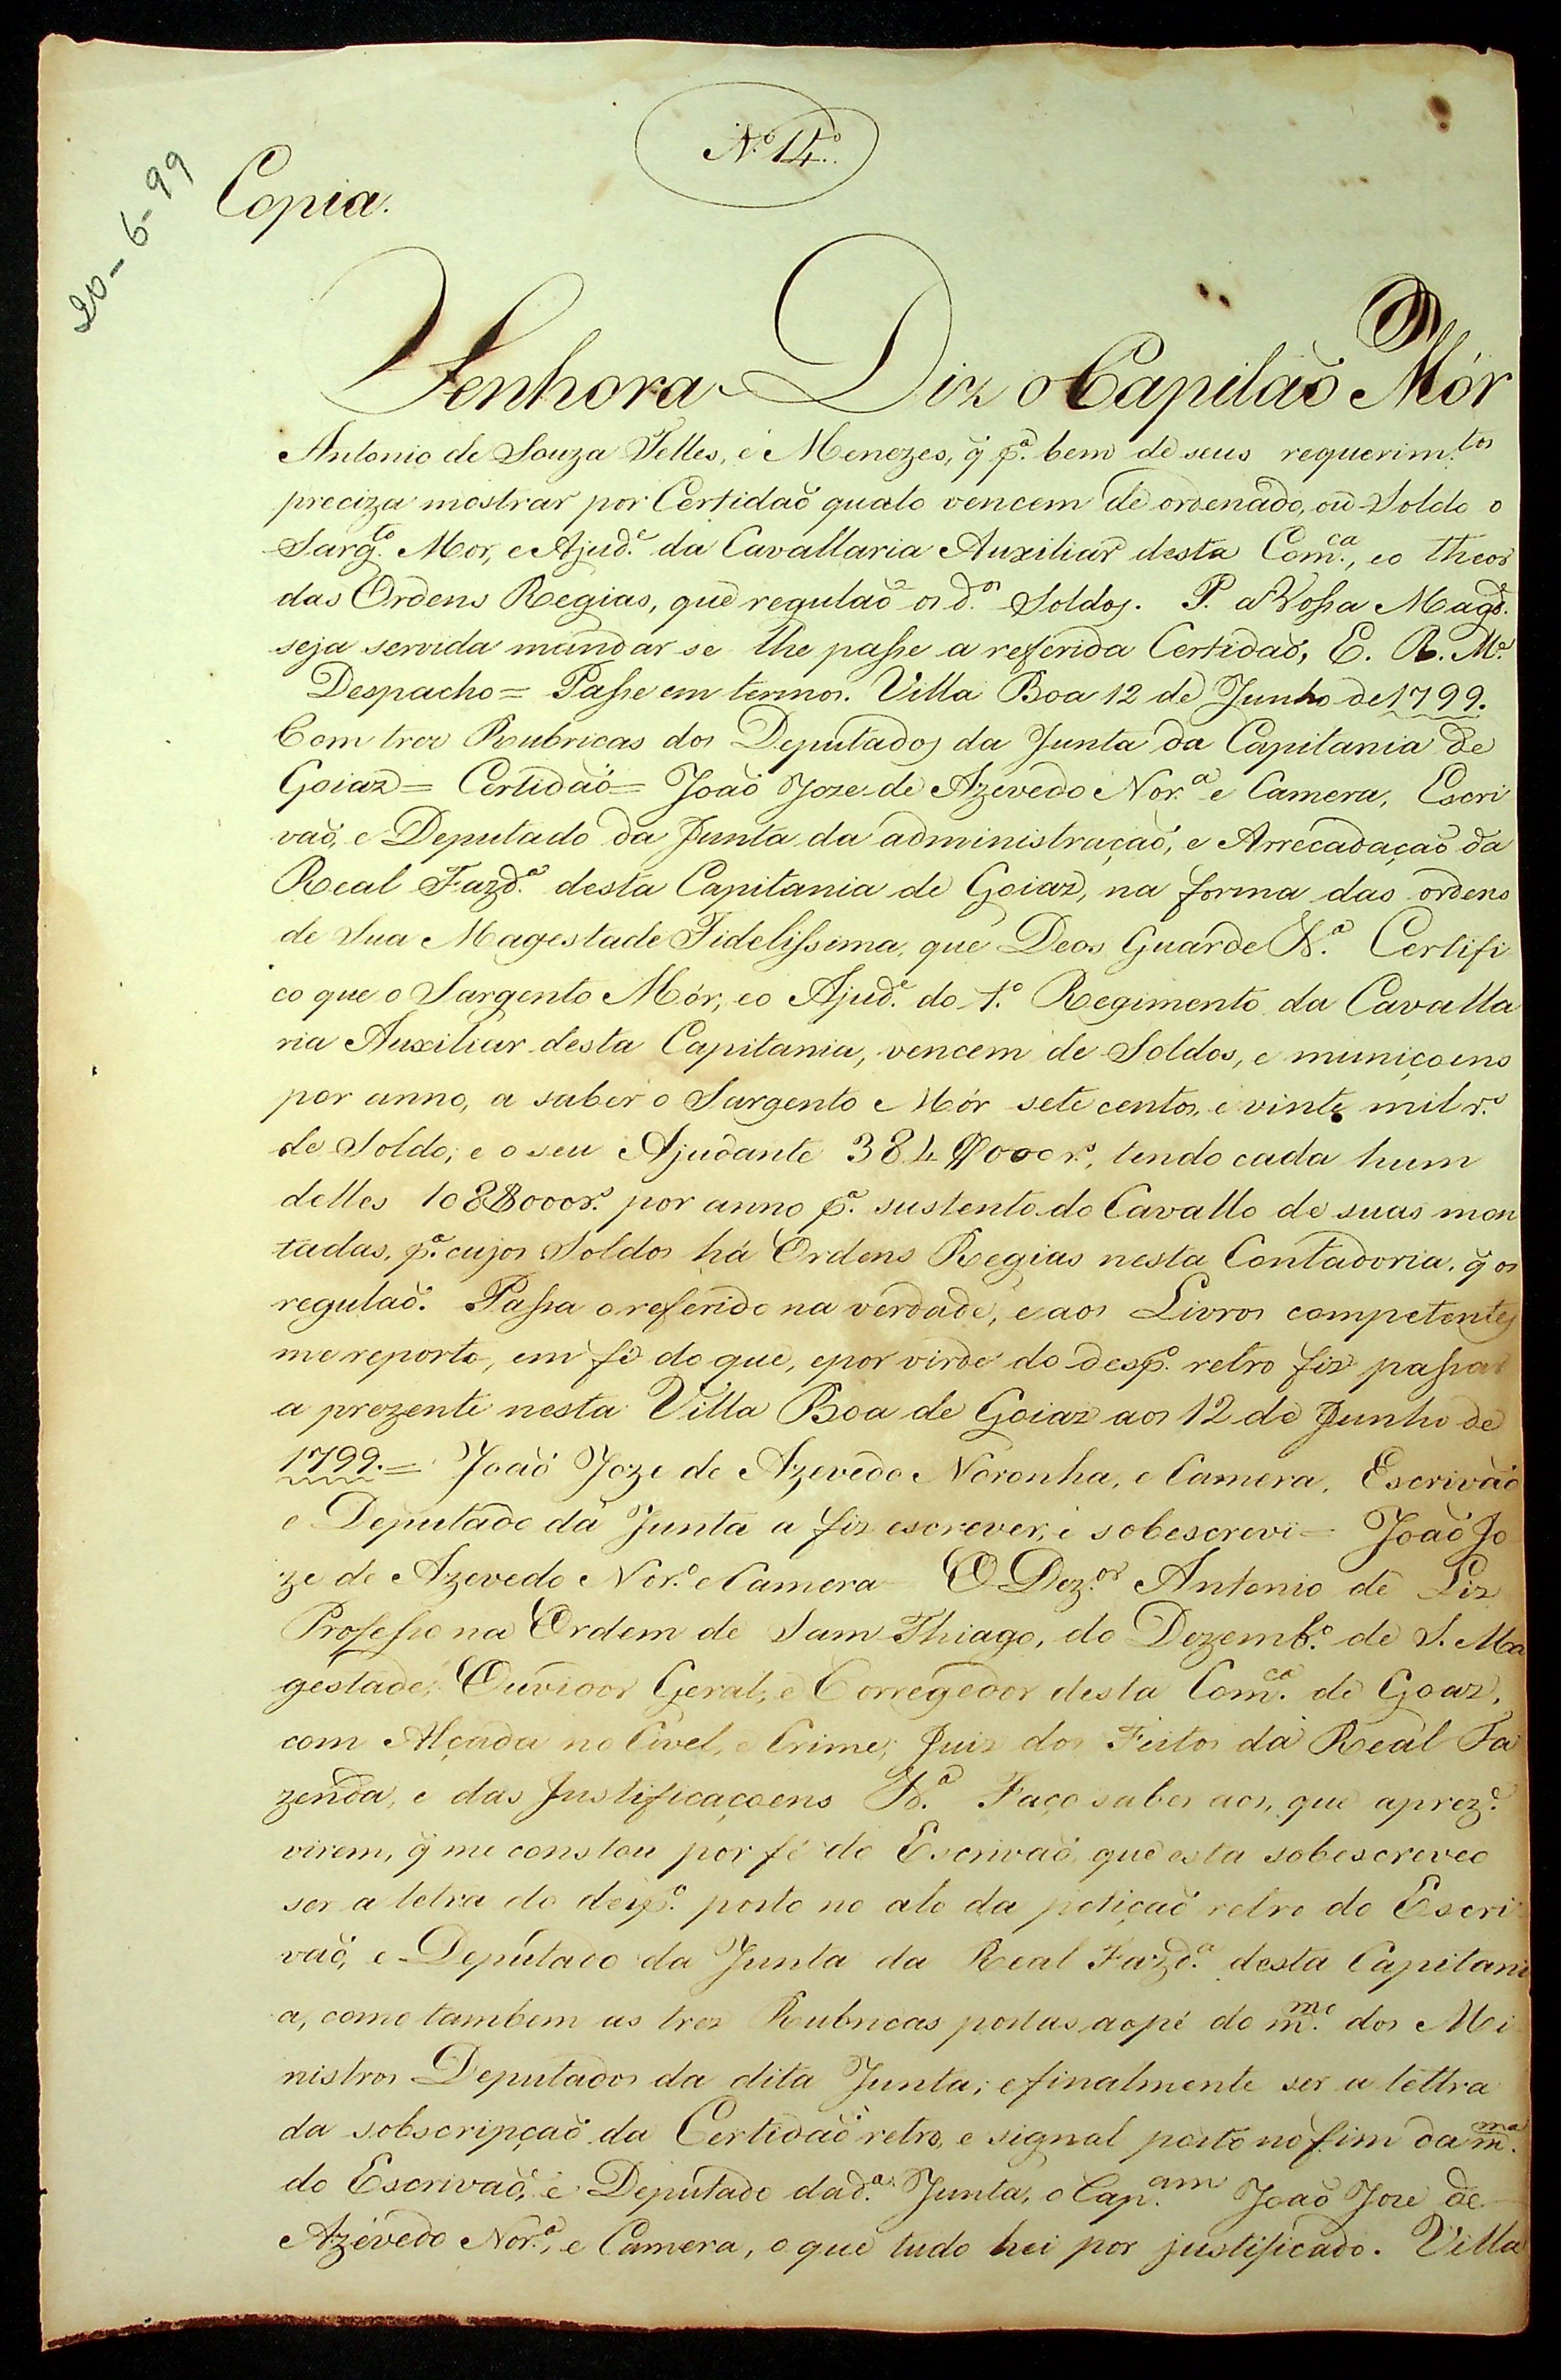 Nº. 14º.
20-6-99
Copia.
Senhora Diz o Capitaõ Mór
Antonio de Souza Telles, e Menezes, q̃ pª. bem de seus requerim.tos
preciza mostrar por Certidaõ quato vencem de ordenado, ou Soldo o
Sarg.to Mor, e Ajud.e da Cavallaria Auxiliar desta Com.ca, eo theor
das Ordens Regias, que regulaõ os d.os Soldos. P. a Vossa Magd.e
seja servida mandar se lhe passe a referida Certidaõ, E. R. M.e
Despacho = Passe em termos. Villa Boa 12 de Junho de 1799.
Com trez Rubricas dos Deputados da Junta da Capitania de
Goiaz = Certidaõ = Joaõ Joze de Azevedo Nor.a e Camera, Escri
vaõ, e Deputado da Junta da administraçaõ, e Arrecadaçaõ da
Real Fazd.a desta Capitania de Goiaz, na forma das ordens
de Sua Magestade Fidelissima, que Deos Guarde &.a Certifi
co que o Sargento Mór, eo Ajud.e do 1.o Regimento da Cavalla
ria Auxiliar desta Capitania, vencem de Soldos, e muniçoens
por anno, a saber o Sargento Mór sete centos, e vinte mil r.s
de Soldo; e o seu Ajudante 384$000 r.s, tendo cada hum
delles 108$000 r.s por anno pª. sustento do Cavallo de suas mon
tadas, pª. cujos Soldos há Ordens Regias nesta Contadoria, q̃ os
regulaõ. Passa o referido na verdade, e aos Livros competentes
me reporto, em fé do que, epor virde do desp.o retro fiz passar
a prezente nesta Villa Boa de Goiaz aos 12 de Junho de
1799. = Joaõ Joze de Azevedo Noronha, e Camera, Escrivaõ
e Deputado da Junta a fiz escrever, e sobescrevi = Joaõ Jo
ze de Azevedo Nor.a e Camera O Dez.or Antonio de Liz
Professo na Ordem de Sam Thiago, do Dezemb.o de S. Ma
gestade, Ouvidor Geral, e Corregedor desta Com.ca de Goaz,
com Alçada no Civel, e Crime; Juiz dos Feitos da Real Fa
zenda, e das Justificaçoens &.a Faço saber aos, que aprez.e
virem, q̃ me constou por fé do Escrivaõ, que esta sobescreveo
ser a letra do desp.o posto no alto da petiçaõ retro do Escri
vaõ, e Deputado da Junta da Real Fazd.a desta Capitani
a, como tambem as trez Rubricas postas aopé do m.mo dos Mi
nistros Deputados da dita Junta; efinalmente ser a lettra
da sobscripçaõ da Certidaõ retro, e signal posto no fim da m.ma
do Escrivaõ, e Deputado dad.a Junta, o Cap.am Joaõ Joze de
Azevedo Nor.a, e Camera, o que tudo hei por justificado. Villa